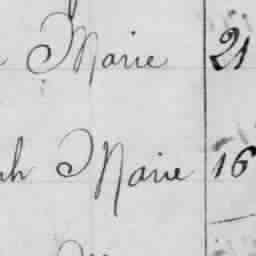 Marie 21
Marie 16